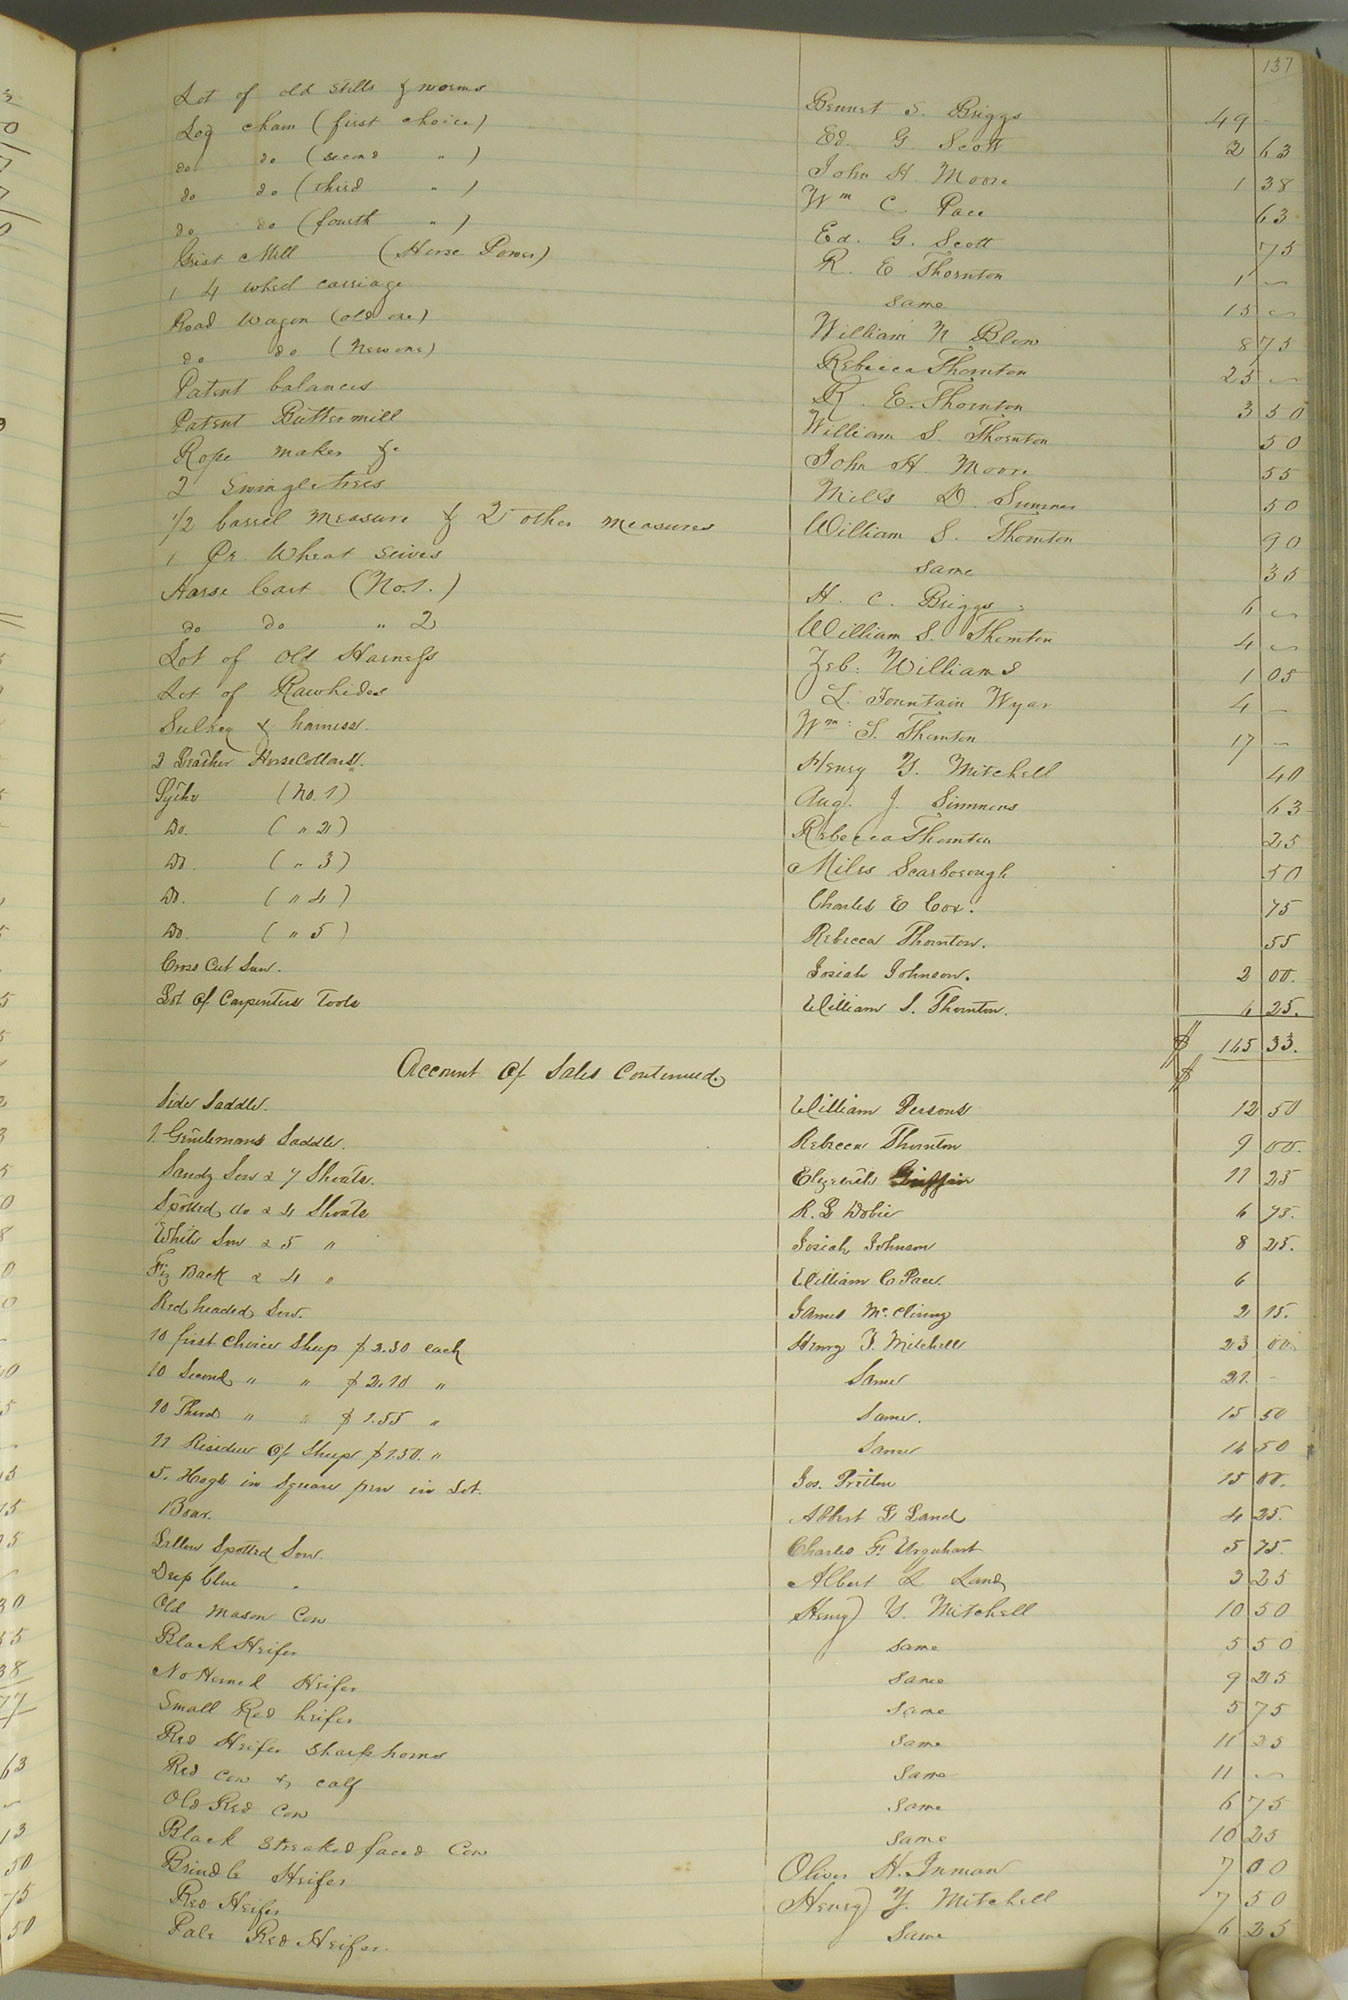 137
Lot of old Stills & worms Bennet S. Briggs 49 -
Log Chain (first choice) Ed. G. Scott 2 63
do do (second " ) John H. Moore 1 38
do do (third " ) Wm C. Pace 63
do do (fourth " ) Ed. G. Scott 75
Grist Mill (Horse Power) R. E Thornton 1 -
1 4 wheel carriage same 15 -
Road Wagon (old one) William N Blow 8 75
do do (New one) Rebecca Thornton 25 -
Patent balances R. E. Thornton 3 50
Patent Buttermill William S. Thornton 50
Rope maker &c John H. Moore 55
2 Swingletrees Mills D. Sumner 50
1/2 barrel measure & 2 other measures William S. Thornton 90
1 Pr. Wheat Seives same 35
Horse Cart (No. 1.) H. C. Briggs 6 -
do do " 2 William S. Thornton 4 -
Lot of Old Harness Zeb: Williams 1 05
Lot of Rawhides L. Fountain Wyar 4 -
Sulkey & harness. Wm: S. Thornton 17 -
2 Leather Horse Collars. Henry Y. Mitchell 40
(No. 1) Aug. J. Simmons 63
Do. ( " 2) Rebecca Thornton 25
Do. ( " 3) Miles Scarborough 50
Do. ( " 4) Charles E Cox. 75
Do. ( " 5) Rebecca Thornton. 55
Cross Cut Saw. Josiah Johnson. 2 00.
Lot of Carpenters Tools William S. Thornton. 6 25.
$ 145 33.
Account Of Sales Continued. $
Side Saddle. William Persons 12 50
1 Gentlemans Saddle. Rebecca Thornton 9 00.
Sandy Sow & 7 Shoats. Elizabeth Griffin 11 25
Spotted do & 4 Shoats R. L Dobie 6 75.
White Sow & 5 " Josiah Johnson 8 25.
Back & 4 " William C Pace. 6
Red headed Sow. James Mc 2 15.
10 first choice Sheep $2.30 each Henry Y. Mitchell 23 00.
10 Second " " $2.10 " Same 21. -
10 Third " " $1.55 " Same. 15 50
11 Residue of Sheep $1.50. " Same 16 50
5. Hogs in Square pen in Lot. Jos. 15 00.
1 Boar. Albert L Land 4 25.
Yellow Spotted Sow. Charles F. Urquhart 5 75.
Deep blue " Albert L Land 3 25
Old Mason Cow Henry Y. Mitchell 10 50
Black Heifer same 5 50
No Horned Heifer same 9 25
Small Red heifer same 5 75
Red Heifer Sharp horns same 11 25
Red Cow & calf same 11 -
Old Red Cow same 6 75
Black Streaked faced Cow same 10 25
Brindle Heifer Oliver H. Inman 7 00
Red Heifer Henry Y. Mitchell 7 50
Pale Red Heifer. Same 6 25